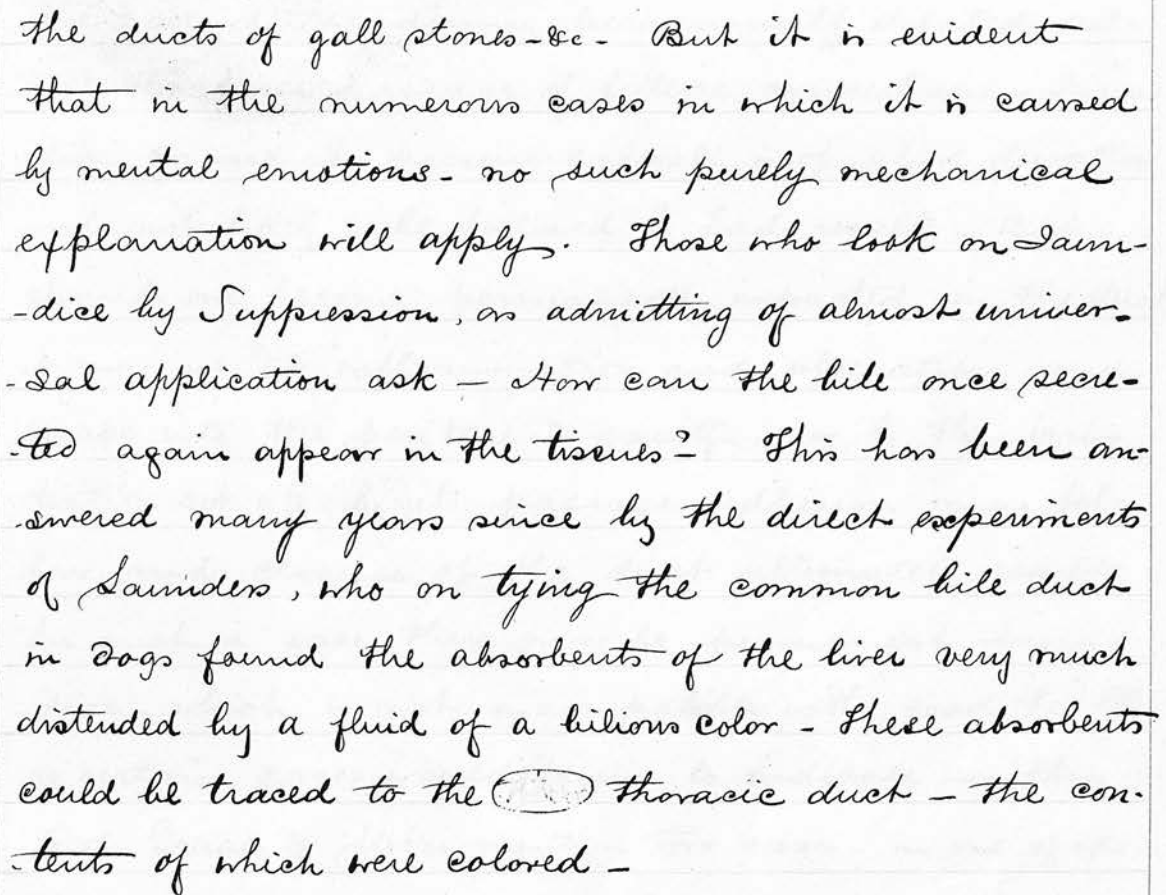 the ducts of gall stones - &c - But it is evident
that in the numerous cases in which it is caused
by mental emotions - no such purely mechanical
explanation will apply. Those who look on Jaun-
-dice by Suppression, as admitting of almost univer-
-sal application ask - How can the bile once secre-
-ted again appear in the tissues? This has been an-
-swered many years since by the direct experiments
of Saunders, who on tying the common bile duct
in dogs found the absorbents of the liver very much
distended by a fluid of a bilious color - These absorbents
could be traced to the thoracic duct - the con-
-tents of which were colored -